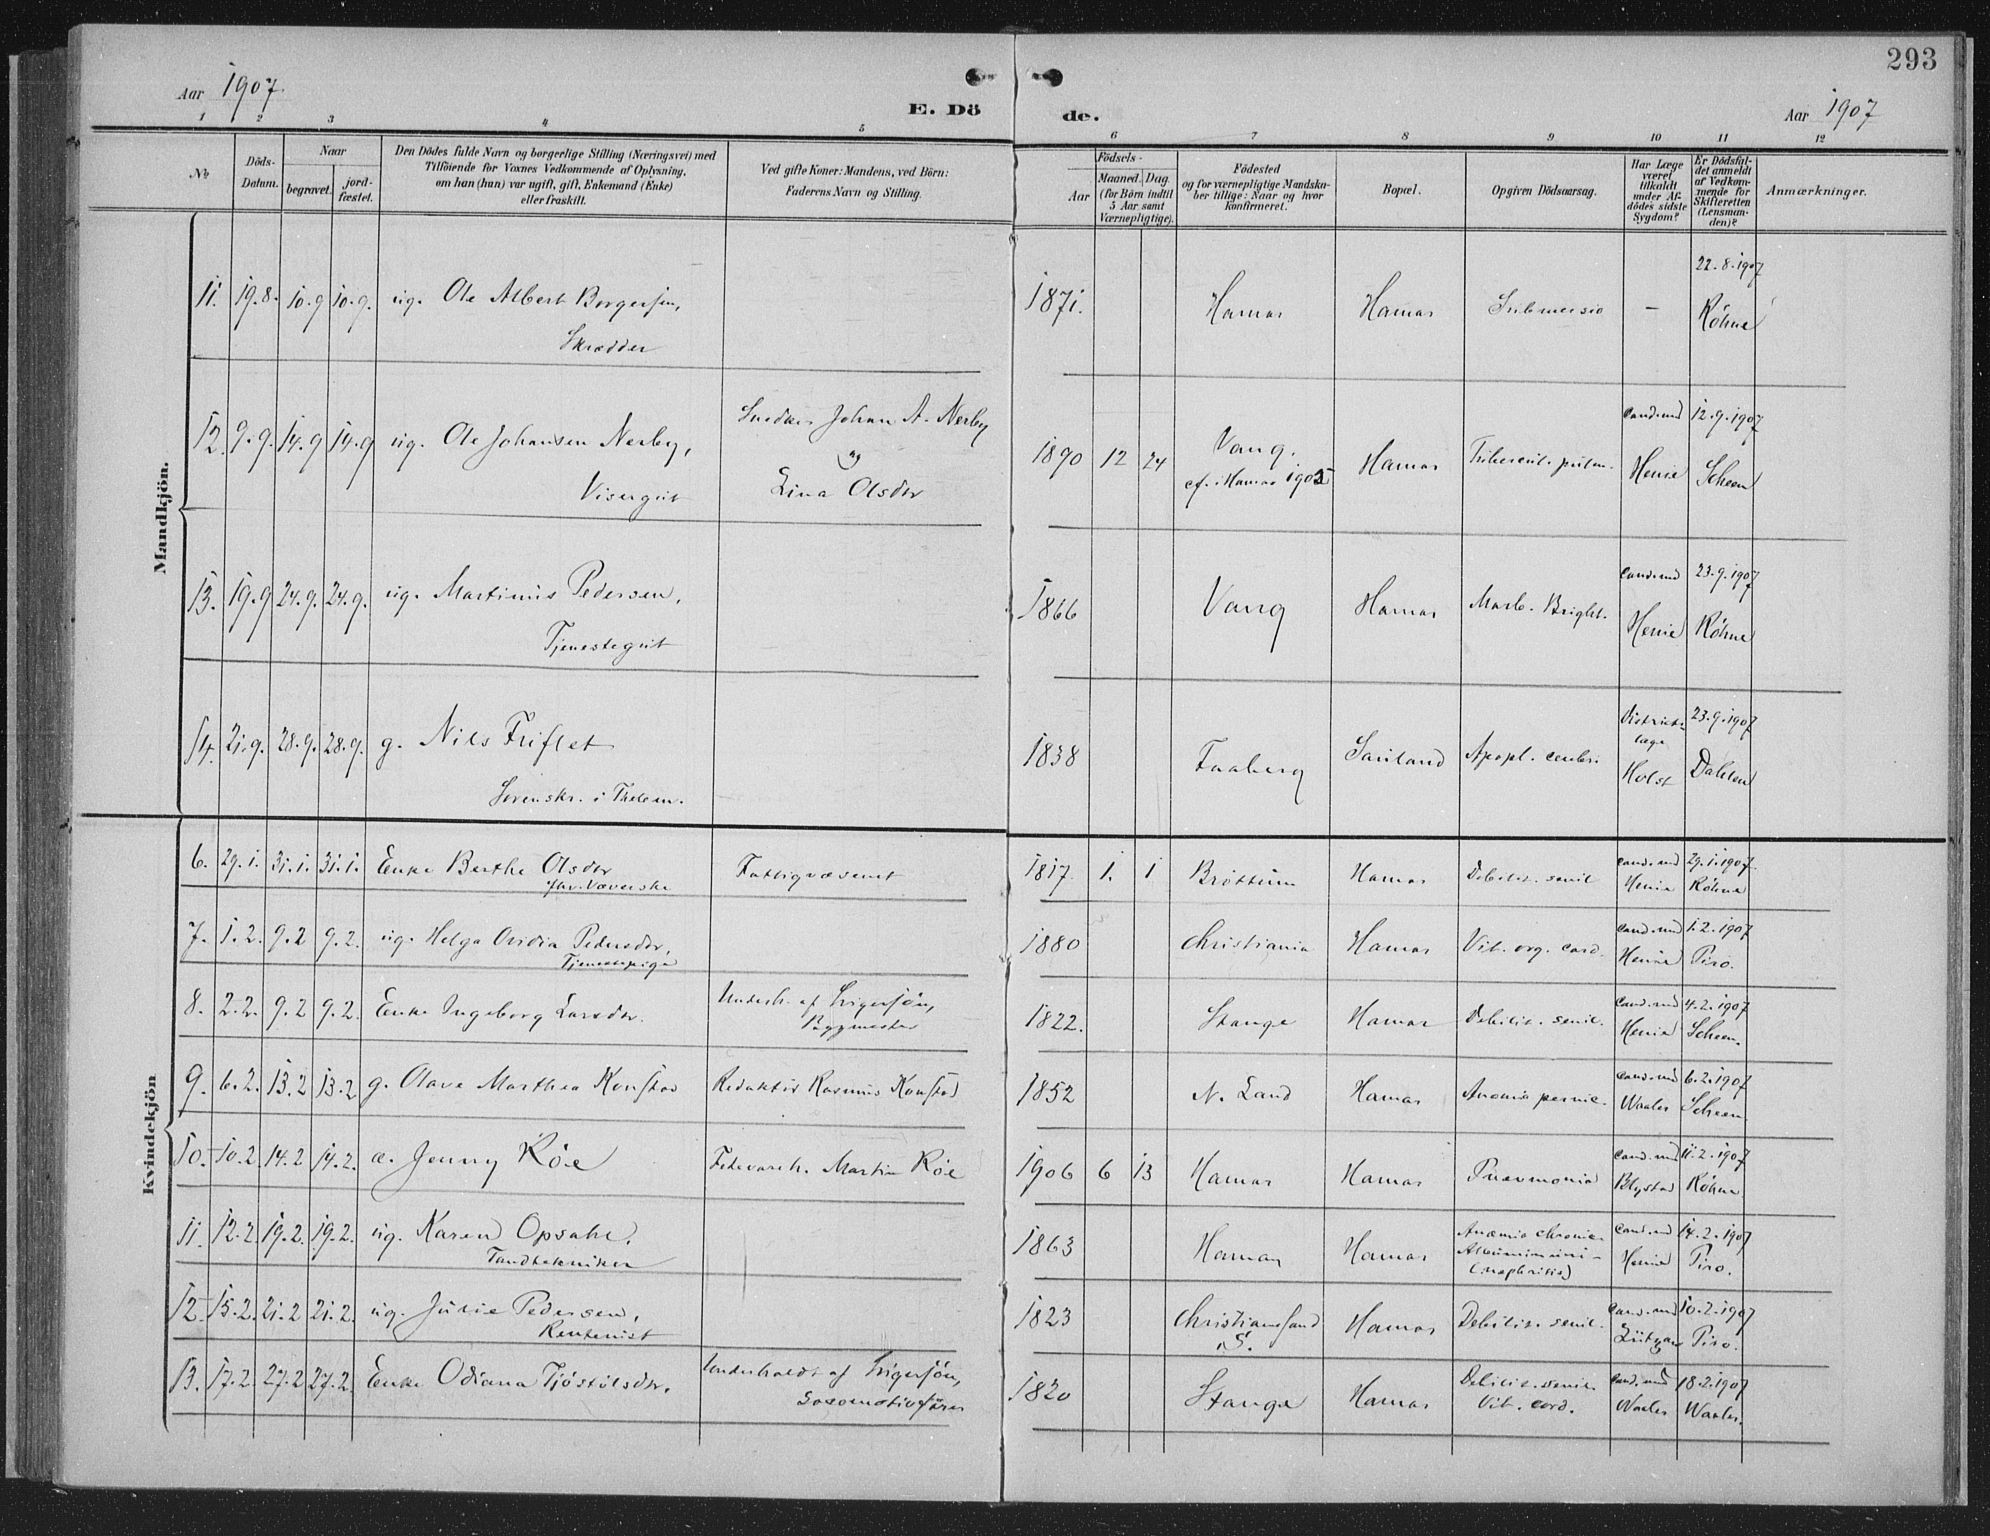 293
Aar 1907
E. Dö
de.
Aar 1907
1 2 3 4 5 6 7 8 9 10 11 12
No
Döds-
Datum.
Naar
begravet.
jord-
fæstet.
Den Dödes fulde Navn og borgerlige Stilling (Næringsvei) med
Tilföiende for Voxnes Vedkommende af Oplysning,
om han (hun) var ugift, gift, Enkemand (Enke)
eller fraskilt.
Ved gifte Koner: Mandens, ved Börn:
Faderens Navn og Stilling.
Födsels-
Aar
Maaned. Dag.
(for Börn indtil
5 Aar samt
Værnepligtige).
Födested
og for værnepligtige Mandska-
ber tillige: Naar og hvor
konfirmeret.
Bopæl.
Opgiven Dödsaarsag.
Har Læge
været
tilkaldt
under Af-
dödes sidste
Sygdom?
Er Dödsfal-
det anmeldt
af Vedkom-
mende for
Skifteretten
(Lensman-
den)?
Anmærkninger.
Mandkjön.
22.8.1907
11. 19.8. 10.9 10.9. ug. Ole Albert Borgersen, 1871. Hamar Hamar Submersio — Röhne
Skrædder
Snedker Johan A. Nerby cand.med 12.9.1907
12. 9.9. 14.9 14.9 ug. Ole Johansen Nerby, og 1890 12 24 Vang. Hamar Tubercul. pulm.
Visergut Lina Olsdtr cf. i Hamar 1905 Henie Scheen
cand.med 23.9.1907
13. 19.9 24.9. 24.9. ug. Martinus Pedersen, 1866 Vang Hamar Morb. Bright.
Tjenestegut Henie Röhne
Distrikts- 23.9.1907
læge
14. 21.9. 28.9. 28.9. g. Nils Friflet 1838 Faaberg Sauland Apopl. cerebri
Sorenskr. i Thelem. Holst Dahlen
Kvindekjön
6. 29.1. 31.1. 31.1. Enke Berthe Olsdtr Fattigvæsenet 1817 1. 1 Bröttum Hamar Debilit. senil cand.med 29.1.1907
fhv. Væverske Henie Röhne
7. 1.2. 9.2 9.2. ug. Helga Ovidia Pedersdtr, 1880 Christiania Hamar Vit. org. cord. cand.med 1.2.1907
Tjenestepige Henie Piro.
8. 2.2. 9.2 9.2. Enke Ingeborg Larsdtr. Underh. af Svigersön, 1822. Stange Hamar Debilit. senil. cand.med 4.2.1907
Byggmester Henie Scheen.
9. 6.2. 13.2 13.2 g. Olava Marthea Konstad Redaktör Rasmus Konstad 1852 N. Land Hamar Anæmia pernic. cand.med 6.2.1907
Waaler Scheen
10. 10.2. 14.2 14.2. æ. Jenny Röe Fedevareh. Martin Röe 1906 6 13 Hamar Hamar Pneumonia cand.med 11.2.1907
Blystad Röhne
11. 12.2 19.2. 19.2. ug. Karen Opsahl, 1863 Hamar Hamar Anæmia chronic. cand.med 14.2.1907
Tandtekniker Albuminuri-
(nephritis) Henie Piro.
12. 15.2. 21.2 21.2. ug. Julie Pedersen, 1823 Christianssand Hamar Debilit. senil. cand.med 10.2.1907
Rentenist S. Lützow Piro.
13. 17.2. 27.2 27.2. Enke Odiana Tjöstolsdtr. Underholdt af Svigersön, 1820 Stange Hamar Debilit. senil. cand.med 18.2.1907
Locomotivförer Vit. cord. Waaler Waaler.